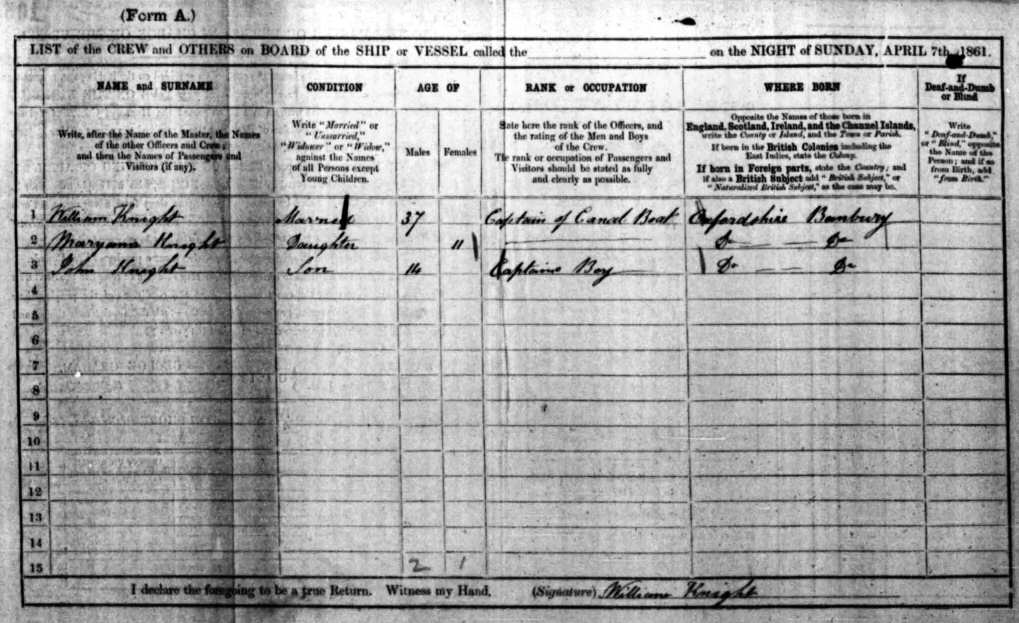 (Form A.)
LIST of the CREW and OTHERS on BOARD of the SHIP or VESSEL called the on the NIGHT of SUNDAY, APRIL 7th, 1861.
NAME and SURNAME
Write, after the Name of the Master, the Names
of the other Officers and Crew;
and then the Names of Passengers and
Visitors (if any).
CONDITION
Write "Married" or
"Unmarried,"
"Widower" or "Widow,"
against the Names
of all Persons except
Young Children.
AGE OF
Males
Females
RANK or OCCUPATION
State here the rank of the Officers, and
the rating of the Men and Boys
of the Crew.
The rank or occupation of Passengers and
Visitors should be stated as fully
and clearly as possible.
WHERE BORN
Opposite the Names of those born in
England, Scotland, Ireland, and the Channel Islands,
write the County or Island, and the Town or Parish.
If born in the British Colonies including the
East Indies, state the Colony.
If born in Foreign parts, state the Country; and
if also a British Subject add "British Subject," or
"Naturalized British Subject," as the case may be.
If
Deaf-and-Dumb
or Blind
Write
"Deaf-and-Dumb,"
or "Blind," opposite
the Name of the
Person; and if so
from Birth, add
"from Birth."
1 William Knight Married 37 Captain of Canal Boat Oxfordshire Banbury
2 Maryann Knight Daughter 11 Do Do
3 John Knight Son 14 Captains Boy Do Do
4
5
6
7
8
9
10
11
12
13
14
15 2 1
I declare the foregoing to be a true Return. Witness my Hand, (Signature) William Knight